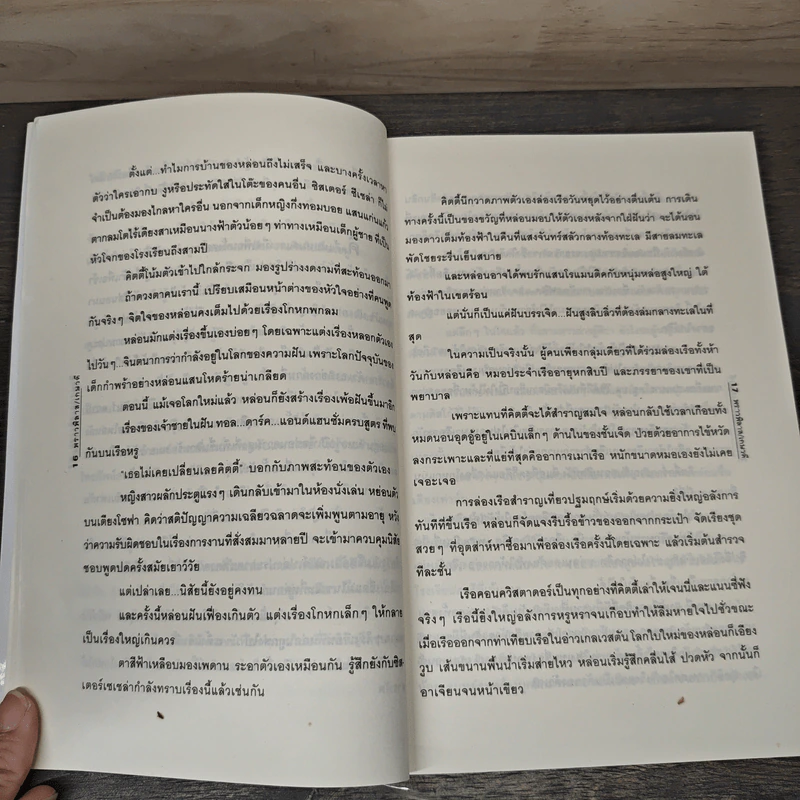 ตั้งแต่...ทำไมการบ้านของหล่อนถึงไม่เสร็จ และบางครั้งเวลาหา
ตัวว่าใครเอากบ งูหรือประทัดใส่ในโต๊ะของคนอื่น ซิสเตอร์ ซีเซล่า ก็ไม่
จำเป็นต้องมองไกลหาใครอื่น นอกจากเด็กหญิงกิ่งทอมบอย แสนแก่นแก้ว
ตากลมโตไร้เดียงสาเหมือนนางฟ้าตัวน้อยๆ ท่าทางเหมือนเด็กผู้ชาย ที่เป็น
หัวโจกของโรงเรียนถึงสามปี
คิตตี้โน้มตัวเข้าไปใกล้กระจก มองรูปร่างงดงามที่สะท้อนออกมา
ถ้าดวงตาคนเรานี้ เปรียบเสมือนหน้าต่างของหัวใจอย่างที่คนพูด
กันจริงๆ จิตใจของหล่อนคงเต็มไปด้วยเรื่องโกหกพกลม
หล่อนมักแต่งเรื่องขึ้นเองบ่อยๆ โดยเฉพาะแต่งเรื่องหลอกตัวเอง
ไปวันๆ...จินตนาการว่ากำลังอยู่ในโลกของความฝัน เพราะโลกปัจจุบันของ
เด็กกำพร้าอย่างหล่อนแสนโหดร้ายน่าเกลียด
ตอนนี้ แม้เจอโลกใหม่แล้ว หล่อนก็ยังสร้างเรื่องเพ้อฝันขึ้นมาอีก
เรื่องของเจ้าชายในฝัน ทอล...ดาร์ค...แอนด์แฮนซั่มครบสูตร ที่พบ
กันบนเรือหรู
"เธอไม่เคยเปลี่ยนเลยคิตตี้" บอกกับภาพสะท้อนของตัวเอง
หญิงสาวผลักประตูแรงๆ เดินกลับเข้ามาในห้องนั่งเล่น หย่อนตัว
บนเตียงโซฟา คิดว่าสติปัญญาความเฉลียวฉลาดจะเพิ่มพูนตามอายุ หวัง
ว่าความรับผิดชอบในเรื่องการงานที่สั่งสมมาหลายปี จะเข้ามาควบคุมนิสัย
ชอบพูดปดครั้งสมัยเยาว์วัย
แต่เปล่าเลย...นิสัยนี้ยังอยู่คงทน
และครั้งนี้หล่อนฝันเฟื่องเกินตัว แต่งเรื่องโกหกเล็กๆ ให้กลาย
เป็นเรื่องใหญ่เกินควร
ตาสีฟ้าเหลือบมองเพดาน ระอาตัวเองเหมือนกัน รู้สึกยังกับซิส
เตอร์เซเซล่ากำลังทราบเรื่องนี้แล้วเช่นกัน
16
คิตตี้นึกวาดภาพตัวเองล่องเรือวันหยุดไว้อย่างตื่นเต้น การเดิน
ทางครั้งนี้เป็นของขวัญที่หล่อนมอบให้ตัวเองหลังจากใฝ่ฝันว่า จะได้นอน
มองดาวเต็มท้องฟ้าในคืนที่แสงจันทร์สลัวกลางท้องทะเล มีสายลมทะเล
พัดโชยระรื่นเย็นสบาย
และหล่อนอาจได้พบรักแสนโรแมนติคกับหนุ่มหล่อสูงใหญ่ ใต้
ท้องฟ้าในเขตร้อน
แต่นั่นก็เป็นแค่ฝันบรรเจิด...ฝันสูงลิบลิ่วที่ต้องล่มกลางทะเลในที่
สุด
ในความเป็นจริงนั้น ผู้คนเพียงกลุ่มเดียวที่ได้ร่วมล่องเรือทั้งห้า
วันกับหล่อนคือ หมอประจำเรืออายุหกสิบปี และภรรยาของเขาที่เป็น
พยาบาล
เพราะแทนที่คิตตี้จะได้สำราญสมใจ หล่อนกลับใช้เวลาเกือบทั้ง
หมดนอนอุดอู้อยู่ในเคบินเล็กๆ ด้านในของชั้นเจ็ด ป่วยด้วยอาการไข้หวัด
ลงกระเพาะและที่แย่ที่สุดคืออาการเมาเรือ หนักขนาดหมอเองยังไม่เคย
เจอะเจอ
การล่องเรือสำราญเที่ยวปฐมฤกษ์เริ่มด้วยความยิ่งใหญ่อลังการ
ทันทีที่ขึ้นเรือ หล่อนก็จัดแจงรีบรื้อข้าวของออกจากกระเป๋า จัดเรียงชุด
สวยๆ ที่อุตส่าห์หาซื้อมาเพื่อล่องเรือครั้งนี้โดยเฉพาะ แล้วเริ่มต้นสำรวจ
ทีละชั้น
เรือคอนควิสตาดอร์เป็นทุกอย่างที่คิตตี้เล่าให้เจนนี่และแนนซี่ฟัง
จริงๆ เรือนี้ยิ่งใหญ่อลังการหรูหราจนเกือบทำให้ลืมหายใจไปชั่วขณะ
เมื่อเรือออกจากท่าเทียบเรือในอ่าวเกลเวสตัน โลกใบใหม่ของหล่อนก็เอียง
วูบ เส้นขนานพื้นน้ำเริ่มส่ายไหว หล่อนเริ่มรู้สึกคลื่นไส้ ปวดหัว จากนั้นก็
อาเจียนจนหน้าเขียว
17